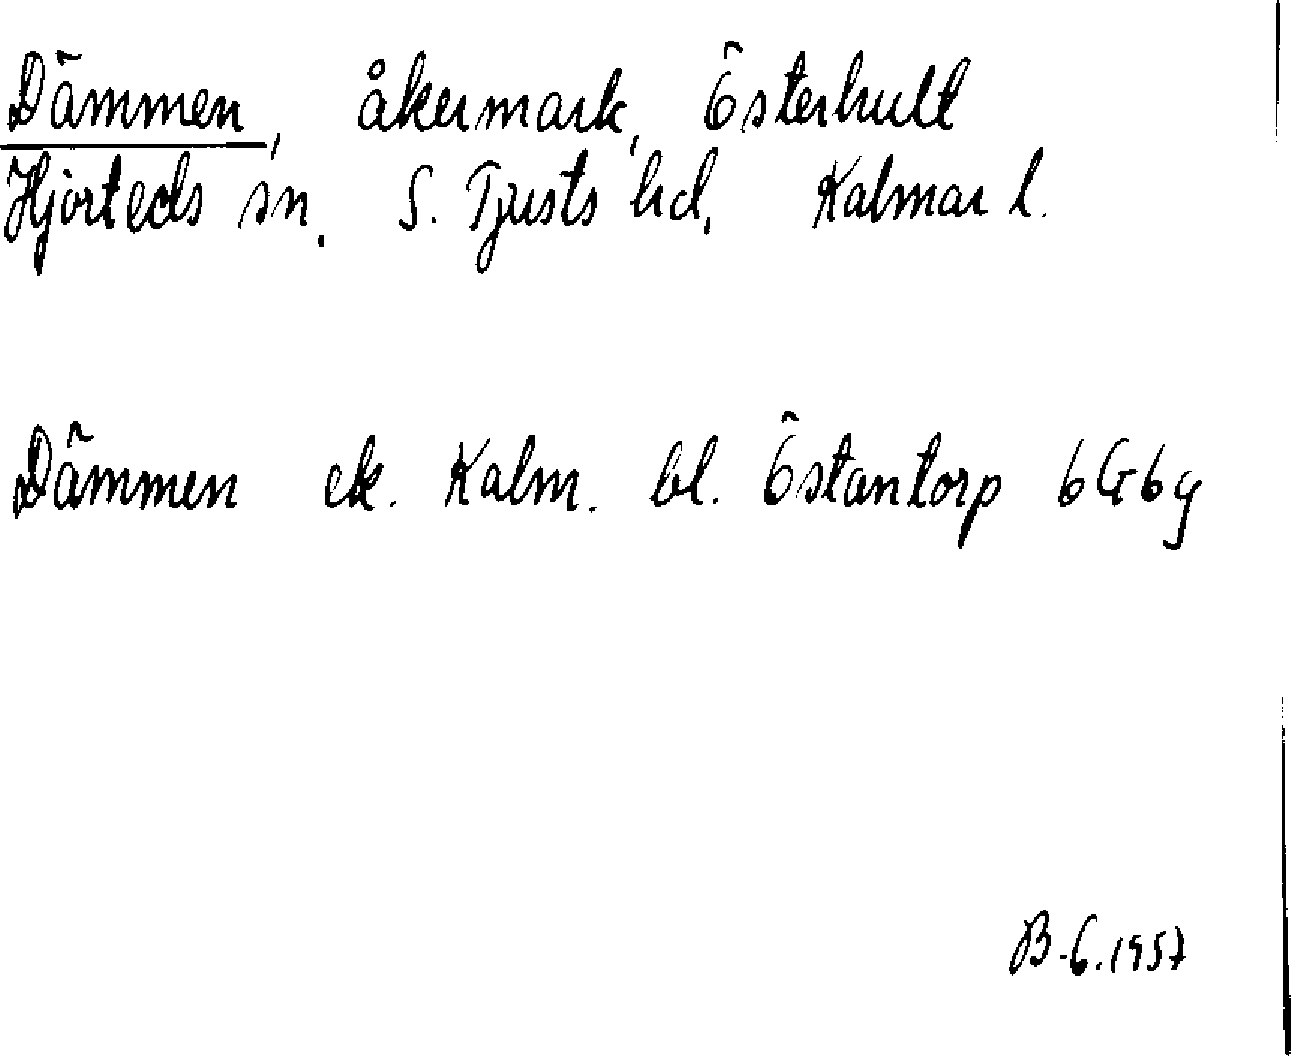 Dämmen, åkermark, Österhult
Hjorteds sn. S. Tjusts hd, Kalmar l.
Dämmen ek. Kalm. bl. Östantorp 6G6g
B-G.1957